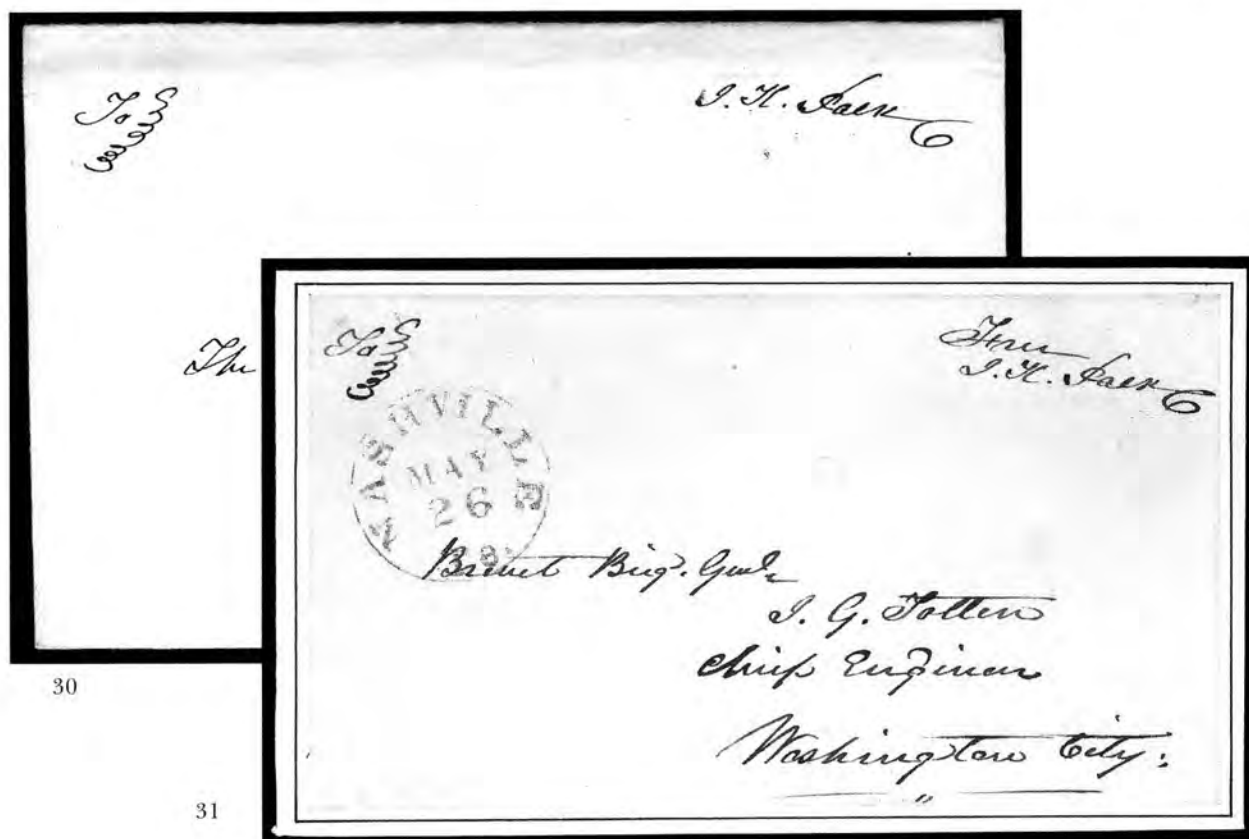 To
J. K. Polk
The
To
Free
J. K. Polk
NASHVILLE
MAY
26
Brevet Brig. Genl.
J. G. Totten
Chief Engineer
Washington City:
30
31